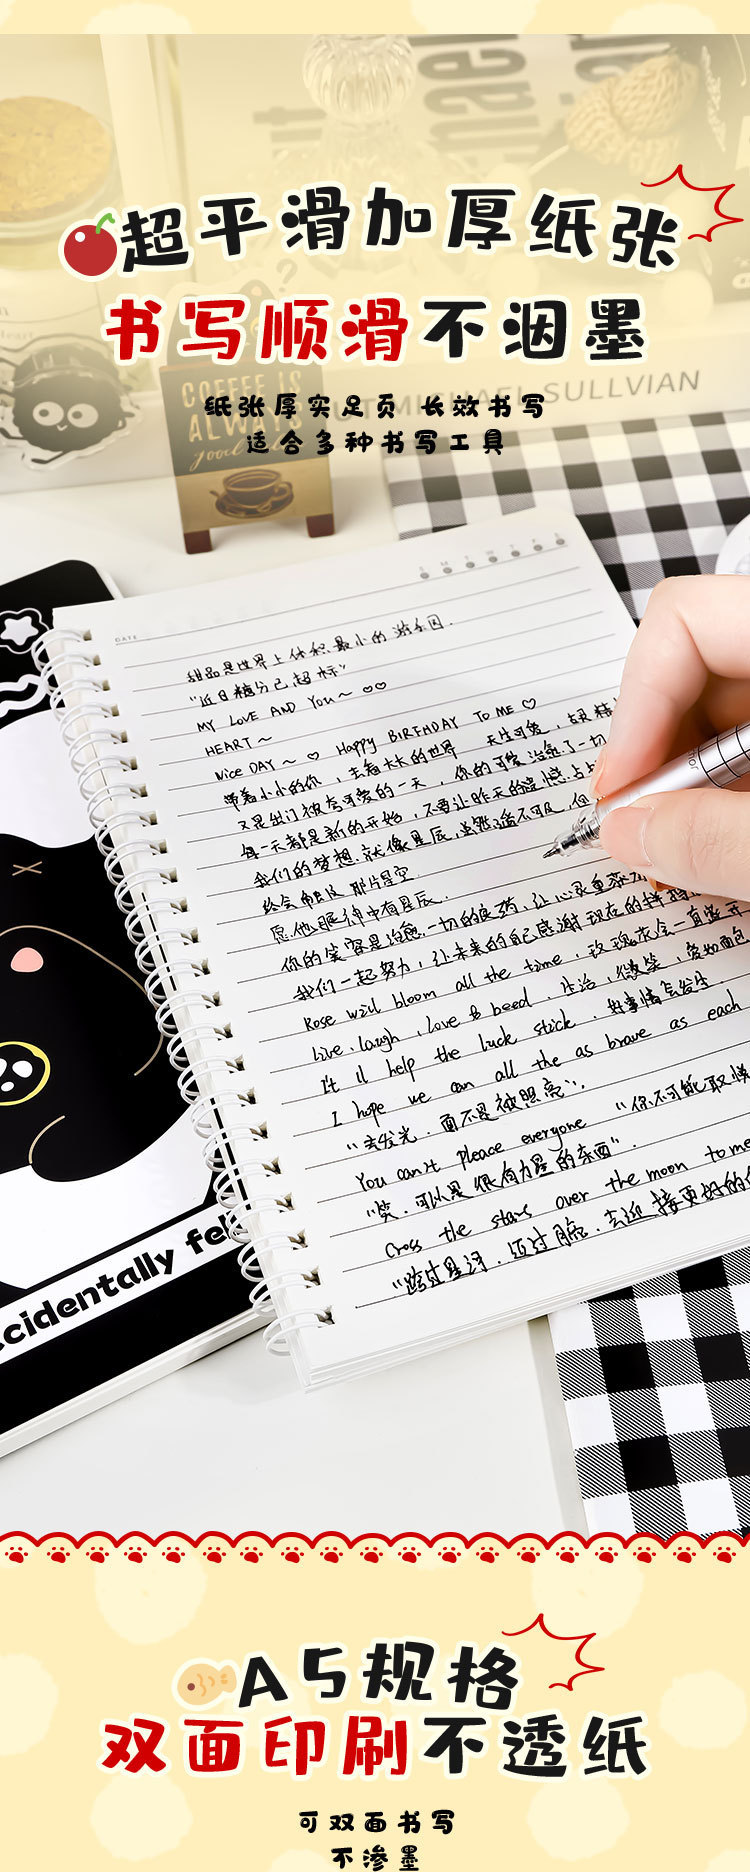 超平滑加厚纸张
书写顺滑不洇墨
COFFEE IS
ALWAYS
MICHAEL SULLVIAN
纸张厚实足页 长效书写
适合多种书写工具
S M T W T F S
DATE
甜品是世界上体积最小的游乐园.
"近日糖分已超标"
MY LOVE AND You~
HEART~
Nice DAY~ ♡ Happy BIRTHDAY TO ME ♡
带着小小的你, 走着大大的世界 天生可爱,
又是出门被夸可爱的一天, 你的可爱治愈了一切
每一天都是新的开始, 不要让昨天的遗憾
我们的梦想.就像星辰,虽然遥不可及,但
终会 那片星空
愿他眼神中有星辰.
你的笑容是治愈一切的良药, 让心灵重
我们一起努力, 让未来的自己感谢现在的样
Rose will bloom all the time, 玫瑰花会一直盛开
Live. laugh, love & beed. 生活, 微笑,
It ll help the luck stick. 好事情会发生.
I hope we can all the as brave as each
"去发光.而不是被照亮".
You can't Pleace everyone "你不可能取悦
"笑.可以是很有力量的东西".
Cross the stars over the moon to me
"跨过星河.迈过月亮.去迎接更好的
ccidentally fe
A5规格
双面印刷不透纸
可双面书写
不渗墨